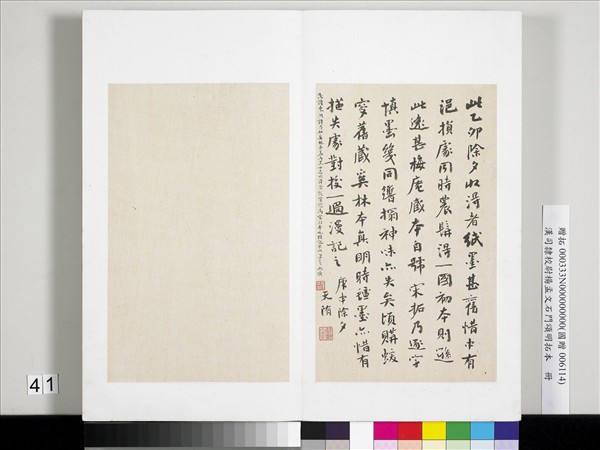 此乙卯除夕收得者紙墨甚舊惜中有
浥損處同時農髯得一國初本則遜
此遠甚梅庵藏本自號宋拓乃逐字
填墨幾同嚮搨神味亦失矣頃購蝯
叟舊藏奚林本真明時氊墨亦惜有
描失處對校一過漫記之
庚申除夕
天隋
41
贈拓 000333N000000000(國贈 006114)
漢司隸校尉楊孟文石門頌明拓本 冊